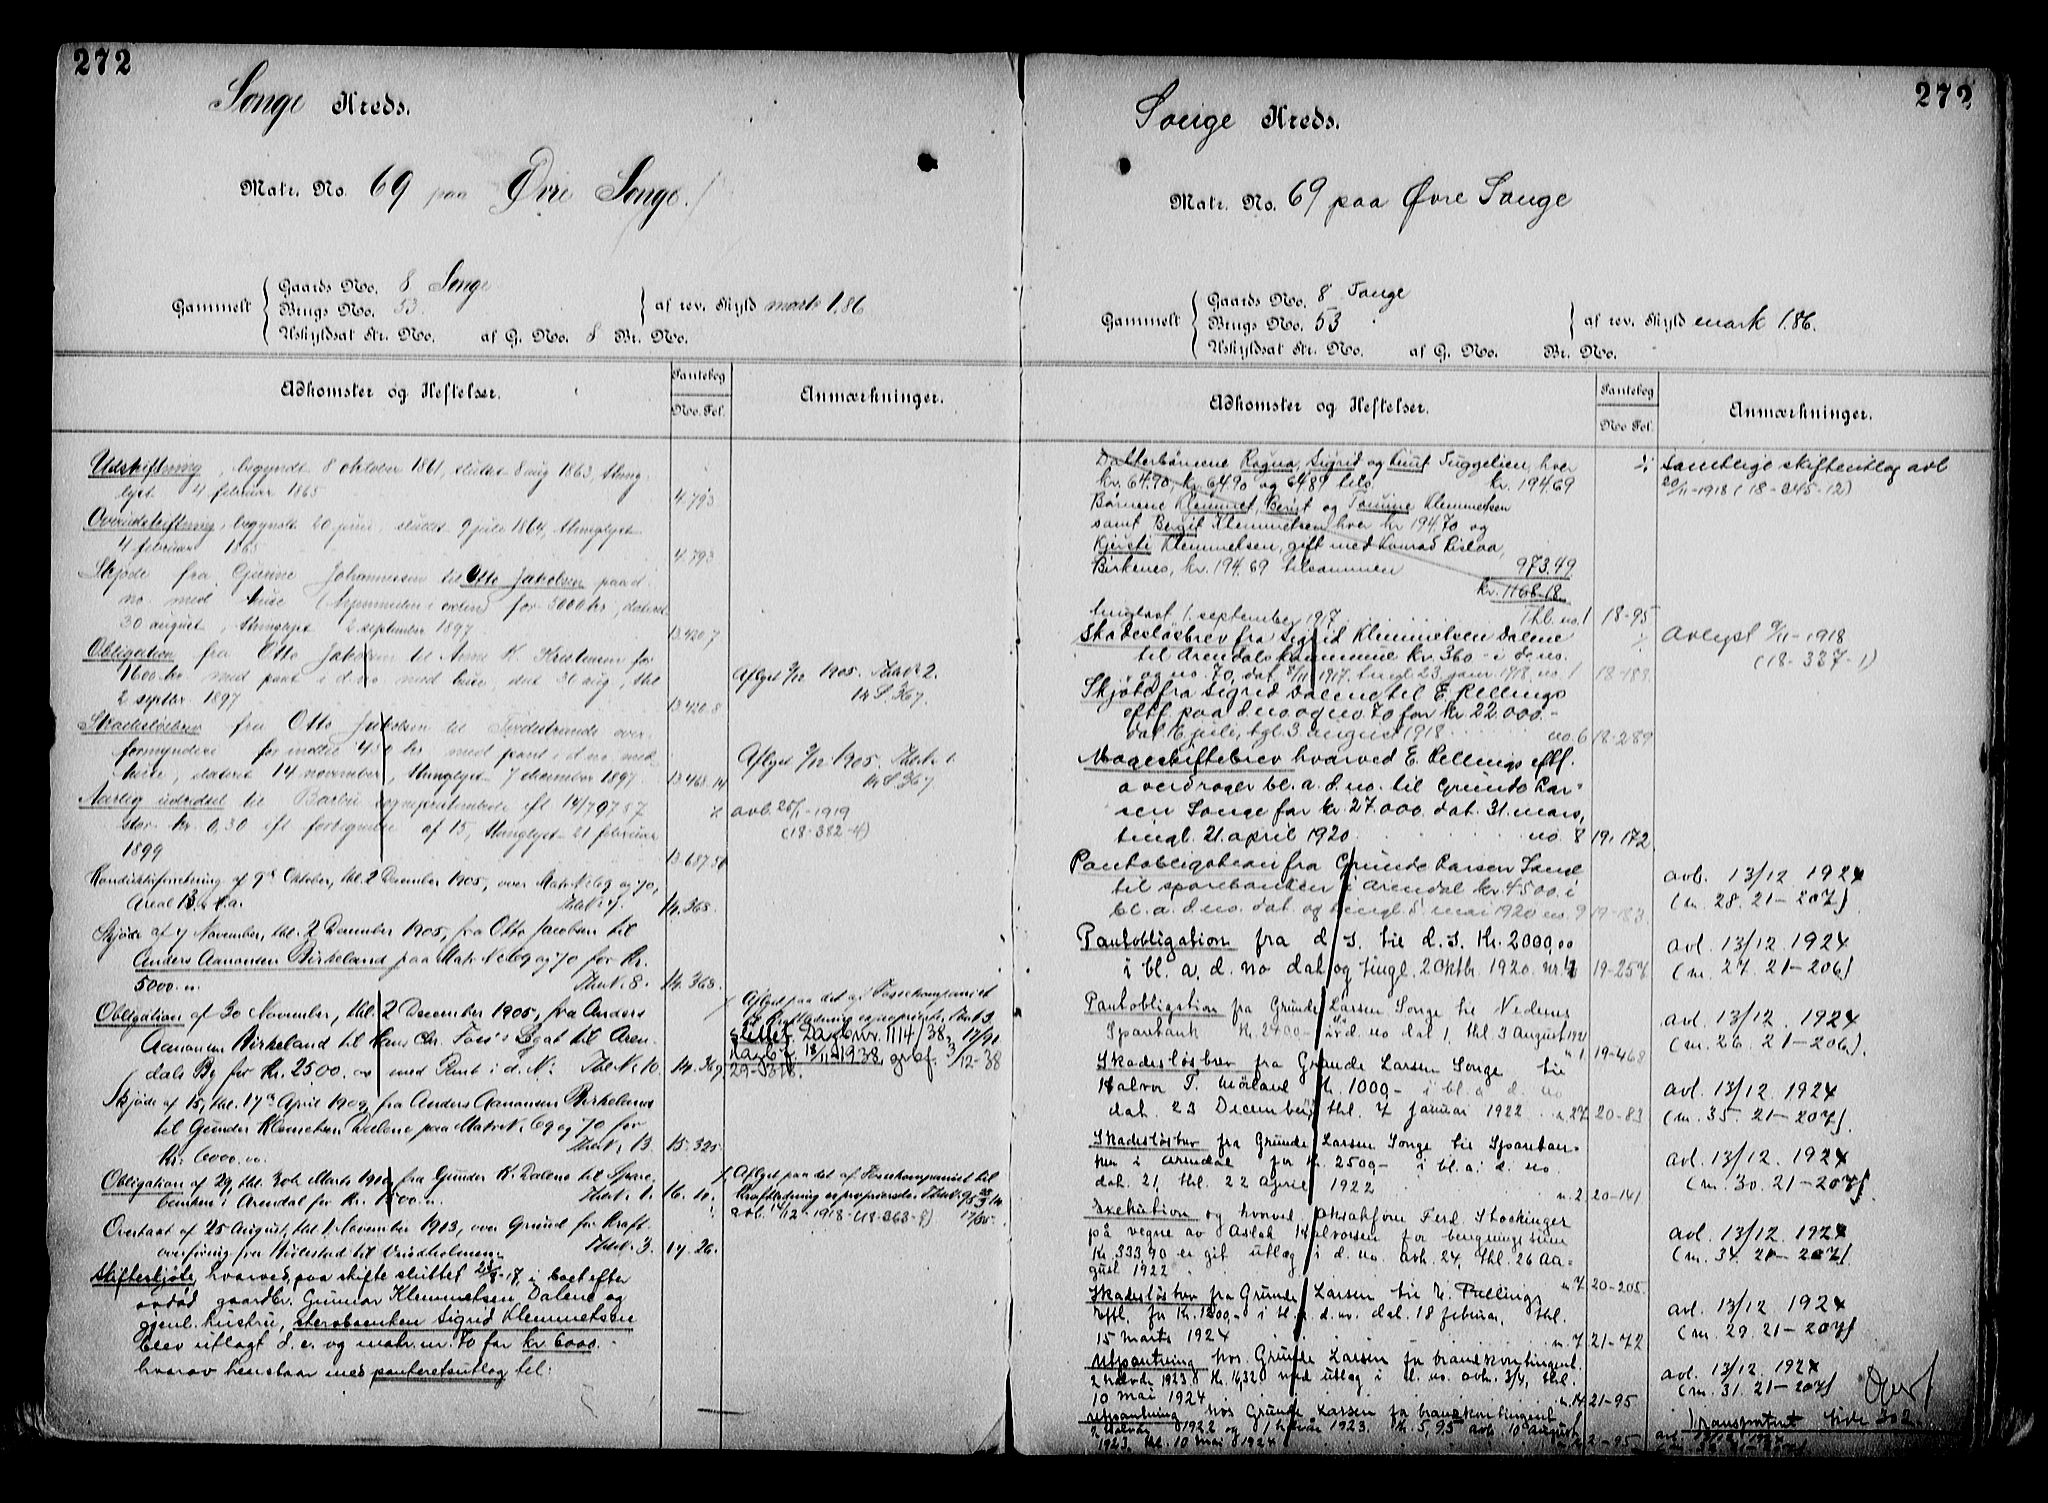 272
Songe Kreds.
Matr. No. 69 paa Øvre Songe.
Gaards No. 8 Songe
Gammelt Brugs No. 53. af rev. Skyld mark 1.86
Uskyldsat Str. No. af G. No. 8 Br. No.
Adkomster og Heftelser. Pantebog No. Fol. Anmærkninger.
Udskiftning, begyndt 8 oktober 1861, sluttet 8 aug 1863, thing-
lyst 4 februar 1865 4.793
Overudskiftning, begyndt 20 juni, sluttet 9 july 1864, thinglyst
4 februar 1865 4.793
Skjøde fra Gjerine Johannesen til Otto Jakobsen paa d.
no. med huse for 3000 kr, dateret
30 august, thinglyst 2 september 1897 13.420.7
Obligation fra Otto Jakobsen til Anne K. Kristensen for
1600 kr med pant i d. no med huse, dat 31 aug, thl
2 septbr 1897 13.420.8
Aflyst 2/12 1905. Thb. № 2.
14 S. 367.
Skadesløsbrev fra Otto Jakobsen til Tvedestrands over-
formynderi for indtil 450 kr med pant i d. no. med
huse, dateret 14 november, thinglyst 7 december 1897 13.468.14
Aflyst 2/12 1905. Thb. № 1.
14 S. 367
Aarlig udredsel til Barbu sognepræstembede efl 14/7 97 57
stor kr. 0,30 efl fortegnelse af 15, thinglyst 21 februar
1899 13.687.56
avl. 25/1-1919
(18-382-4)
Konduktørforretning af 9de Oktober, thl. 2 December 1905, over Matr. № 69 og 70,
Areal 13. Thb. № 7. 14.368.
Skjøde af 7 November, thl. 2 December 1905, fra Otto Jacobsen til
Anders Aanonsen Birkeland paa Matr. № 69 og 70 for Kr.
5000.00 Thb. № 8. 14.368.
Obligation af 30 November, thl. 2 December 1905, fra Anders
Aanonsen Birkeland til Hans Chr. Foss's Legat til Aren-
dals By for Kr. 2500.00 med Pant i d. №: Thb. № 10. 14.369.
Aflyst paa det af Fossekompaniet
til Kraftledning exproprierte. Thb. № 3
Slettet. Dagbnr. 1114/38, 17/91
dagb. 18/11-1938, 3/12-38
29-318.
Skjøde af 15, thl. 17de April 1909, fra Anders Aanonsen Birkeland
til Gunder Klemetsen Dalene paa Matr. № 69 og 70 for
Kr: 6000.00. Thb. № 13. 15.325.
Obligation af 29, thl. 30te Marts 1910, fra Gunder K. Dalene til Spare-
banken i Arendal for Kr. 1500.00. Thb. № 1. 16.10.
Aflyst paa det af Fossekompaniet til
Kraftledning exproprierte. Thb. № 95
avl. 14/12-1918-(18-363-9) 17/60-
Overtaxt af 25 August, thl. 1 November 1913, over Grund for Kraft-
overføring fra Bøilestad til Vindholmen. Thb. № 3. 17.26.
Skifteskjøte, hvorved, paa skifte sluttet 23/8-17, i boet efter
avdød gaardbr. Gunnar Klemmetsen Dalene og
gjenl. hustru, sterboenken Sigrid Klemmetsen
blev utlagt d. e. og matr. nr. 70 for kr. 6000.-
hvorav henstaar med panteretsutlæg til:
272
Songe Kreds.
Matr. No. 69 paa Øvre Songe
Gaards No. 8 Songe
Gammelt Brugs No. 53 af rev. Skyld mark 1.86.
Uskyldsat Str. No. af G. No. Br. No.
Adkomster og Heftelser. Pantebog No Fol. Anmærkninger.
Datterbørnene Ragna, Sigrid og Knut Tuggelien, hver
kr. 64.90, kr. 64.90 og 64.89 tils. kr. 194.69
Samtlige skifteutlæg avl
20/11-1918 (18-345-12)
Børnene Klemmet, Berit og Tomine Klemmetsen
samt Bergit Klemmetsen hver kr 194.70 og
Kjersti Klemmetsen, gift med Konrad Lislaa,
Birkenes, kr. 194.69 tilsammen 973.49
kr. 1168.18.
tinglæst 1. september 1917 Thb. no. 1 18-95
Skadesløsbrev fra Sigrid Klemmetsen Dalene
til Arendals kommune kr. 360.- i d. no.
og no. 70, dat 8/11 1917, tingl. 23 janr. 1918. no. 1 18-188
Avlyst 9/11-1918
(18-337-1)
Skjøte fra Sigrid Dalene til E. Rellings
eftf. paa d. no. og no. 70 for kr. 22.000.-
dat 16 juli, tgl. 3 august 1918 no. 6 18-289
Mageskiftebrev hvorved E. Rellings eftf.
overdrager bl. a. d. no. til Grunde Lar-
sen Songe for kr. 27.000. dat. 31. mars,
tingl. 21. april 1920. no. 8 19.172
Pantobligation fra Grunde Larsen Songe
til sparebanken i Arendal kr. 4500. i
bl. a. d. no. dat. og tingl. 5. mai 1920 no. 9 19-183
avl. 13/12 1924
(n. 28. 21-207).
Pantobligation fra d. s. til d. s. Kr. 2000,00
i bl. a. d. no dat. og tingl. 2 Oktbr. 1920. nr. 7 19-257
avl. 13/12. 1924
(n. 27. 21-206)
Pantobligation fra Grunde Larsen Songe til Nedenes
Sparebank Kr. 2400- i d. no dat 1, thl 3 August 1921
n 1 19-468
avl. 13/12. 1924
(n. 26. 21-206).
Skadesløsbrev fra Grunde Larsen Songe til
Halvor T. Møland Kr. 1000- i bl. a. d. no
dat. 23 December, thl. 7 Januar 1922 n. 27 20-83
avl. 13/12. 1924
(n. 35. 21-207).
Skadesløsbrev fra Grunde Larsen Songe til Spareban-
ken i Arendal for Kr. 2500- i bl. a. d. no.
dat. 21, thl. 22 April 1922 n. 2. 20-141
avl. 13/12. 1924
(n. 30. 21-207).
Exekution og hvorved saksfører Ferd. Stockinger
på vegne av Aslak Halvorsen for
Kr. 333,90 er git utlæg i d. no. avh. 24, thl. 26 Au-
gust 1922 n. 7 20-205.
avl. 13/12. 1924
(n. 34. 21-207).
Skadesløsbrev fra Grunde Larsen til E. Rellings
Eftf. for Kr. 1200,- i bl. a. d. no. dat. 18 februar, thl.
15 marts 1924 n. 7 21-72
avl. 13/12. 1924
(n. 29. 21-207)
Utpantning hos Grunde Larsen for brandkontingent
2 halvår 1923 Kr. 16,32 med utlæg i d. no. avh. 3/4, thl.
10 mai 1924 n. 14 21-95
avl. 13/12. 1924
(n. 31. 21-207)
Utpantning hos Grunde Larsen for brandkontingent
2 halvår 1922 og 1 halvår 1923. Kr. 5,95 avh 10 august
1923, thl. 10 mai 1924
avl. 13/12. 1924
Transportert side 302